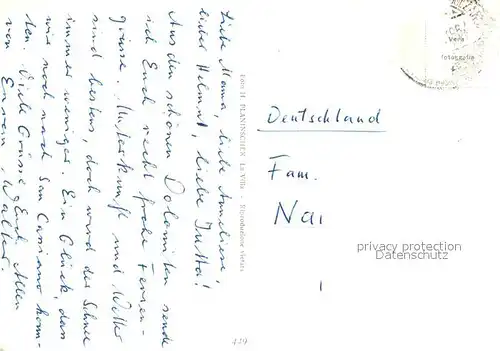 Liebe Mama, liebe Anneliese,
lieber Helmut, liebe Jutta!
Aus den schönen Dolomiten sende
ich Euch recht frohe Ferien-
grüsse. Unterkunft und Wetter
sind bestens, doch wird der Schnee
immer weniger. Ein Glück, dass
wir noch nach San Cassiano kom-
ten. Viele Grüsse Euch Allen
von Eurem Walter.
Foto H. PLANINSCHEK La Villa - Riproduzione vietata
449
Vera
fotografia
Deutschland
Fam.
Nai
privacy protection
Datenschutz